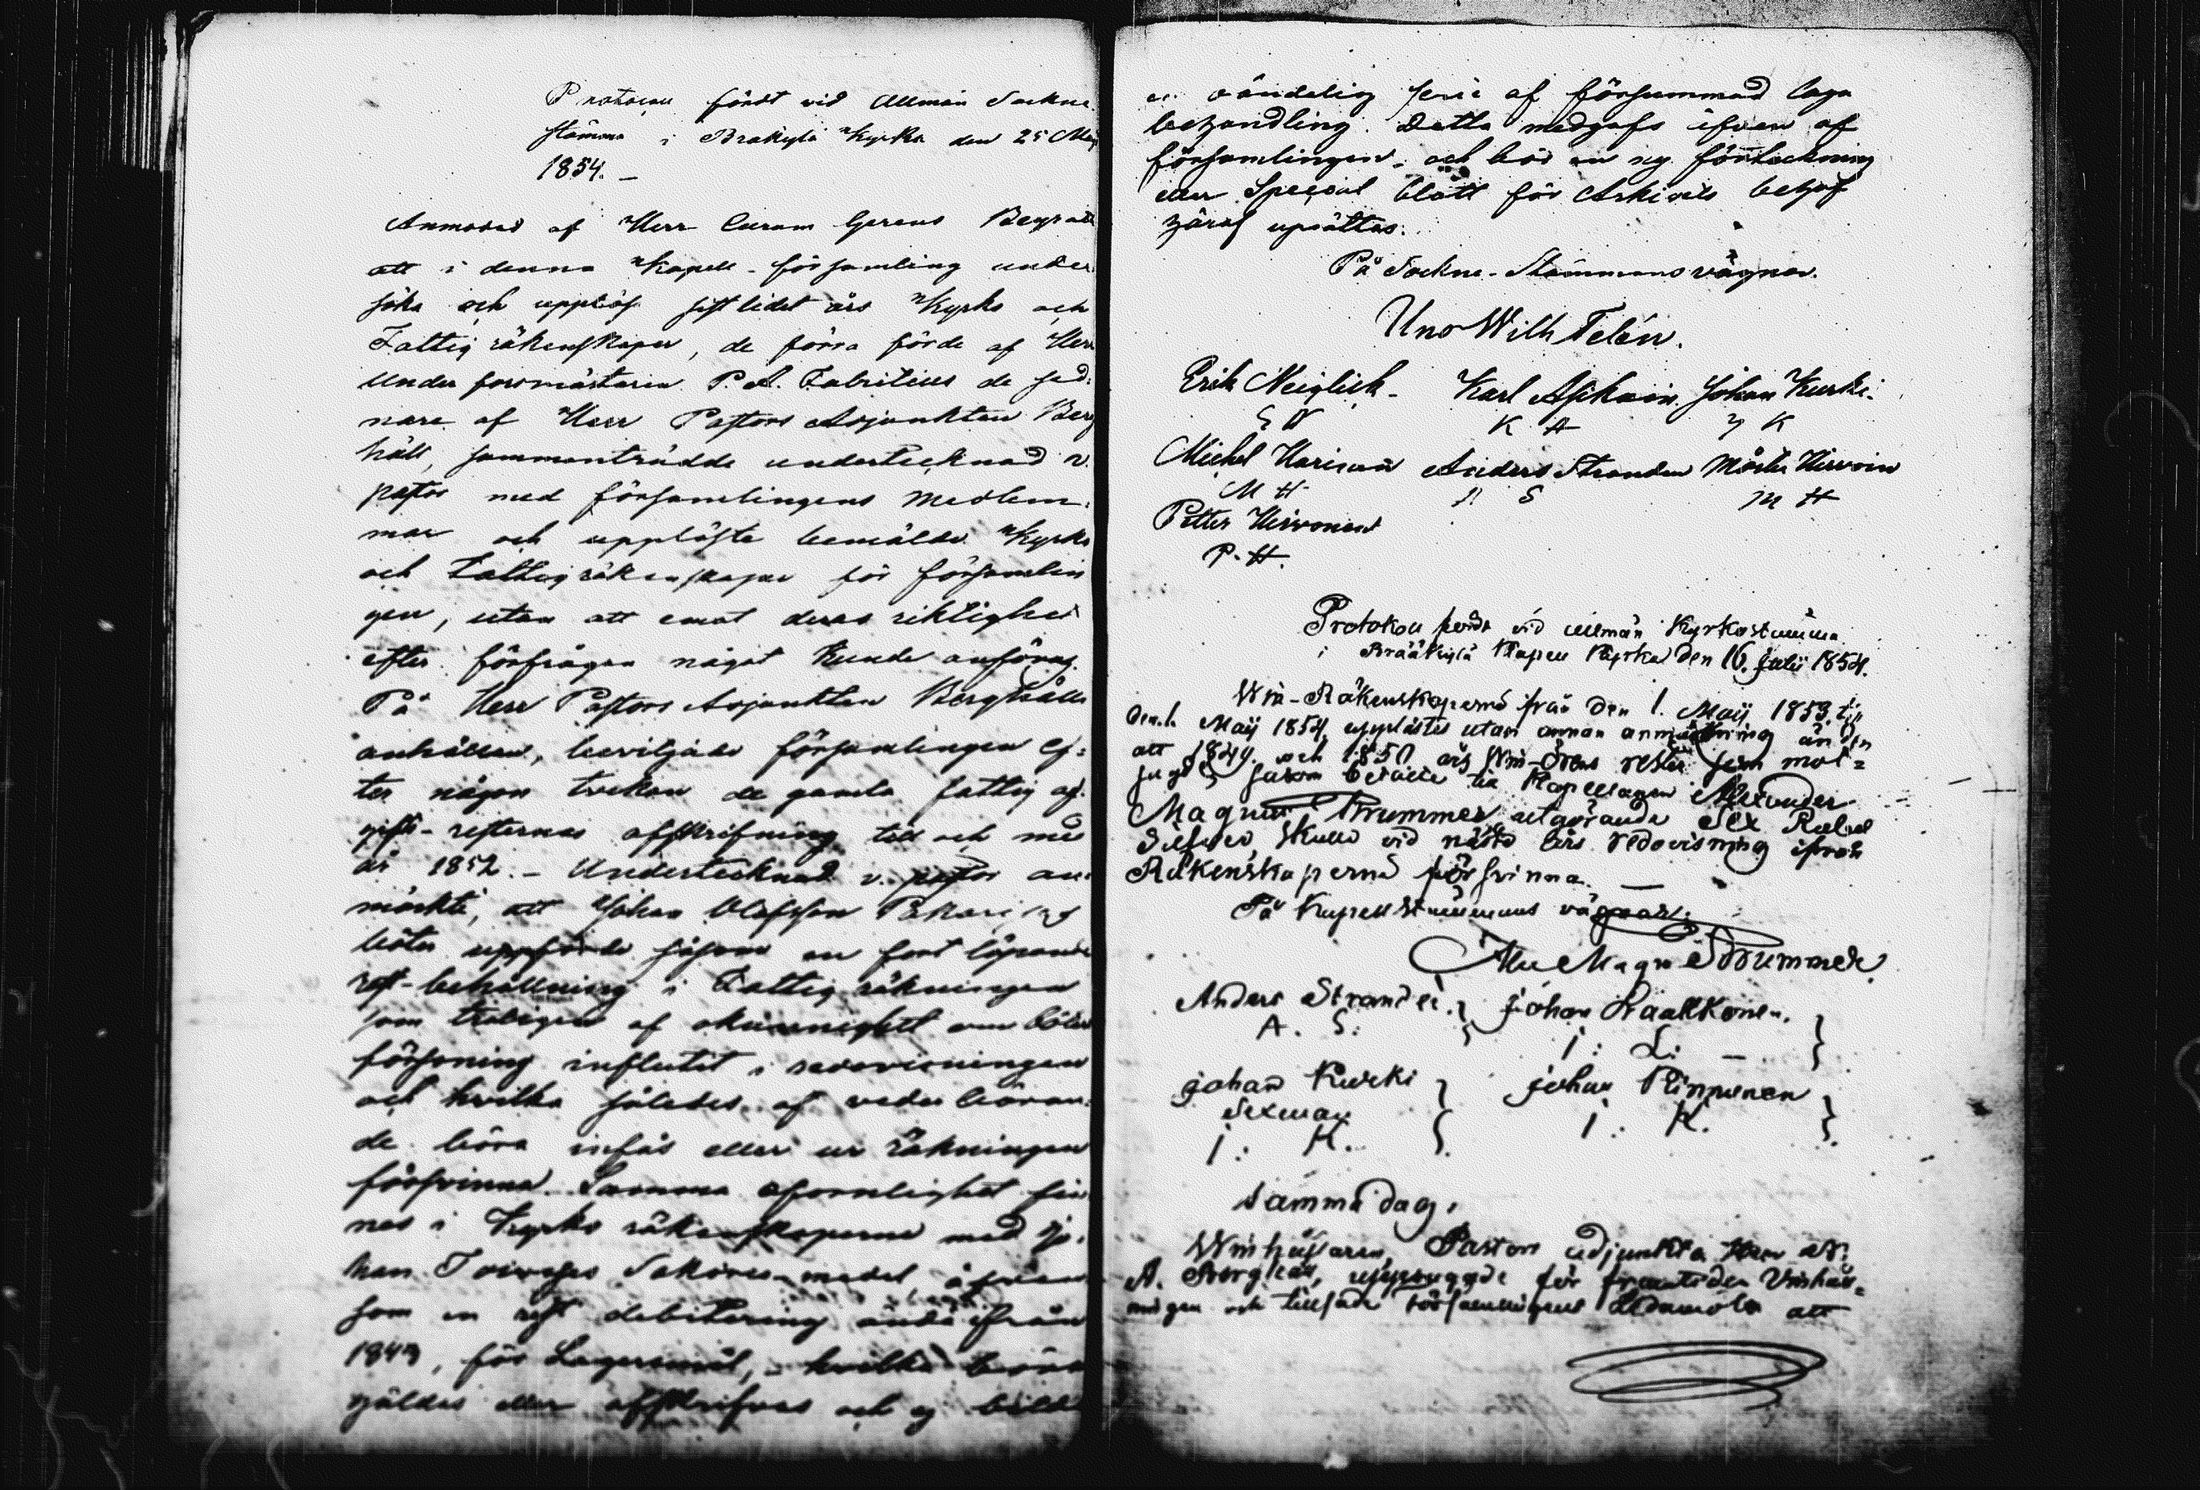 Protocoll fördt vid Allmän Sockne
stämma i Bråkylä Kyrka den 25 Maj
1854. —
Anmodad af Herr Curam Gerens Bergroth
att i denna Kapell-församling under
söka och uppläsa sistledet års Kyrko och
Fattig räkenskaper, de förra förde af Herr
Under forsmästaren P. A. Fabritius de sed-
nare af Herr Pastors Adjunkten Berg
häll, sammanträdde undertecknad v.
pastor med församlingens medlem-
mar och uppläste bemälde Kyrko
och Fattigräkenskaper för församlin
gen, utan att emot deras riktighet
efter förfrågan något kunde anföras.
På Herr Pastors Adjunkten Berghälls
anhållan, beviljade församlingen ef-
ter någon tvekan de gamla fattig af-
gifts-resternas affskrifning till och med
år 1852. — Undertecknad v. pastor an-
märkte, att Johan Olofsson Pakari
böter uppförde såsom en fort löpande
rest-behållning i Fattig räkningen
som troligen af okunnighet om böters
försoning influtit i redovisningen
och hvilka således af veder böran-
de böra infås eller ur räkningen
försvinna. Samma oformlighet fin
nes i Kyrko räkenskaperne med Jo-
han Toivoses Saköres-medel, äfven
som en rest debitering ända ifrån
1849, för Lägersmål, — hvilka böra
gäldas eller affskrifvas och ej bilda
en oändelig serie af försummad laga
behandling. Detta medgafs äfven af
församlingen. och bör en ny förteckning
eller Special blatt för Arkivets behof
häraf upsättas.
På Sockne-Stämmans vägnar.
Uno Wilh Telén.
Erik Neiglick - Karl Asikain Johan Kurki.
E N K A J K
Michel Harinen Anders Stranden Mårten Hirvoin
M H A S M H
Petter Hirvonen
P. H.
Protokoll fördt vid allmän Kyrkostämma
i Brääkylä Kapell Kyrka den 16. Julii 1854.
Win-Räkenskaperna från den 1. Maij 1853 till
den 1. Maij 1854, upplästes utan annan anmärkning än den
att 1849. och 1850 års Win-Örens rester som mot-
sagts såsom betalte till Kapellanen Alexander
Magnus Brummer utgörande Sex Rubel
Silfver, skulle vid nästa års redovisning ifrån
Räkenskaperna försvinna. —
På Kapell Stämmans vägnar:
Alex Magn Brummer.
Anders Stranden. } Johan Laakkonen. }
A. S: J: L: —
Johan Kurki } Johan Kinnunen }
Sexman
J: K. J: K.
Samma dag,
Winhusaren, Pastors adjunkten Herr
A. Berghäll, uppsagade för framtiden Vinhåll-
ningen och tillsade Församlingens Ledamöter att